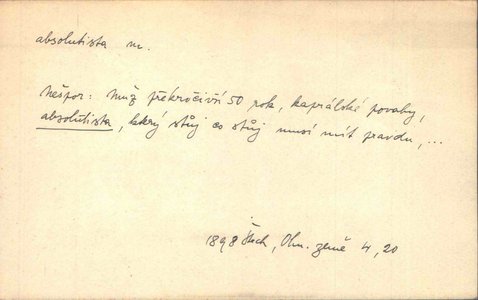 absolutista m.
Nešpor: Muž překročivší 50 rok, kaprálské povahy,
absolutista, který stůj co stůj musí mít pravdu, ...
1898 Štech, Ohn. země 4, 20